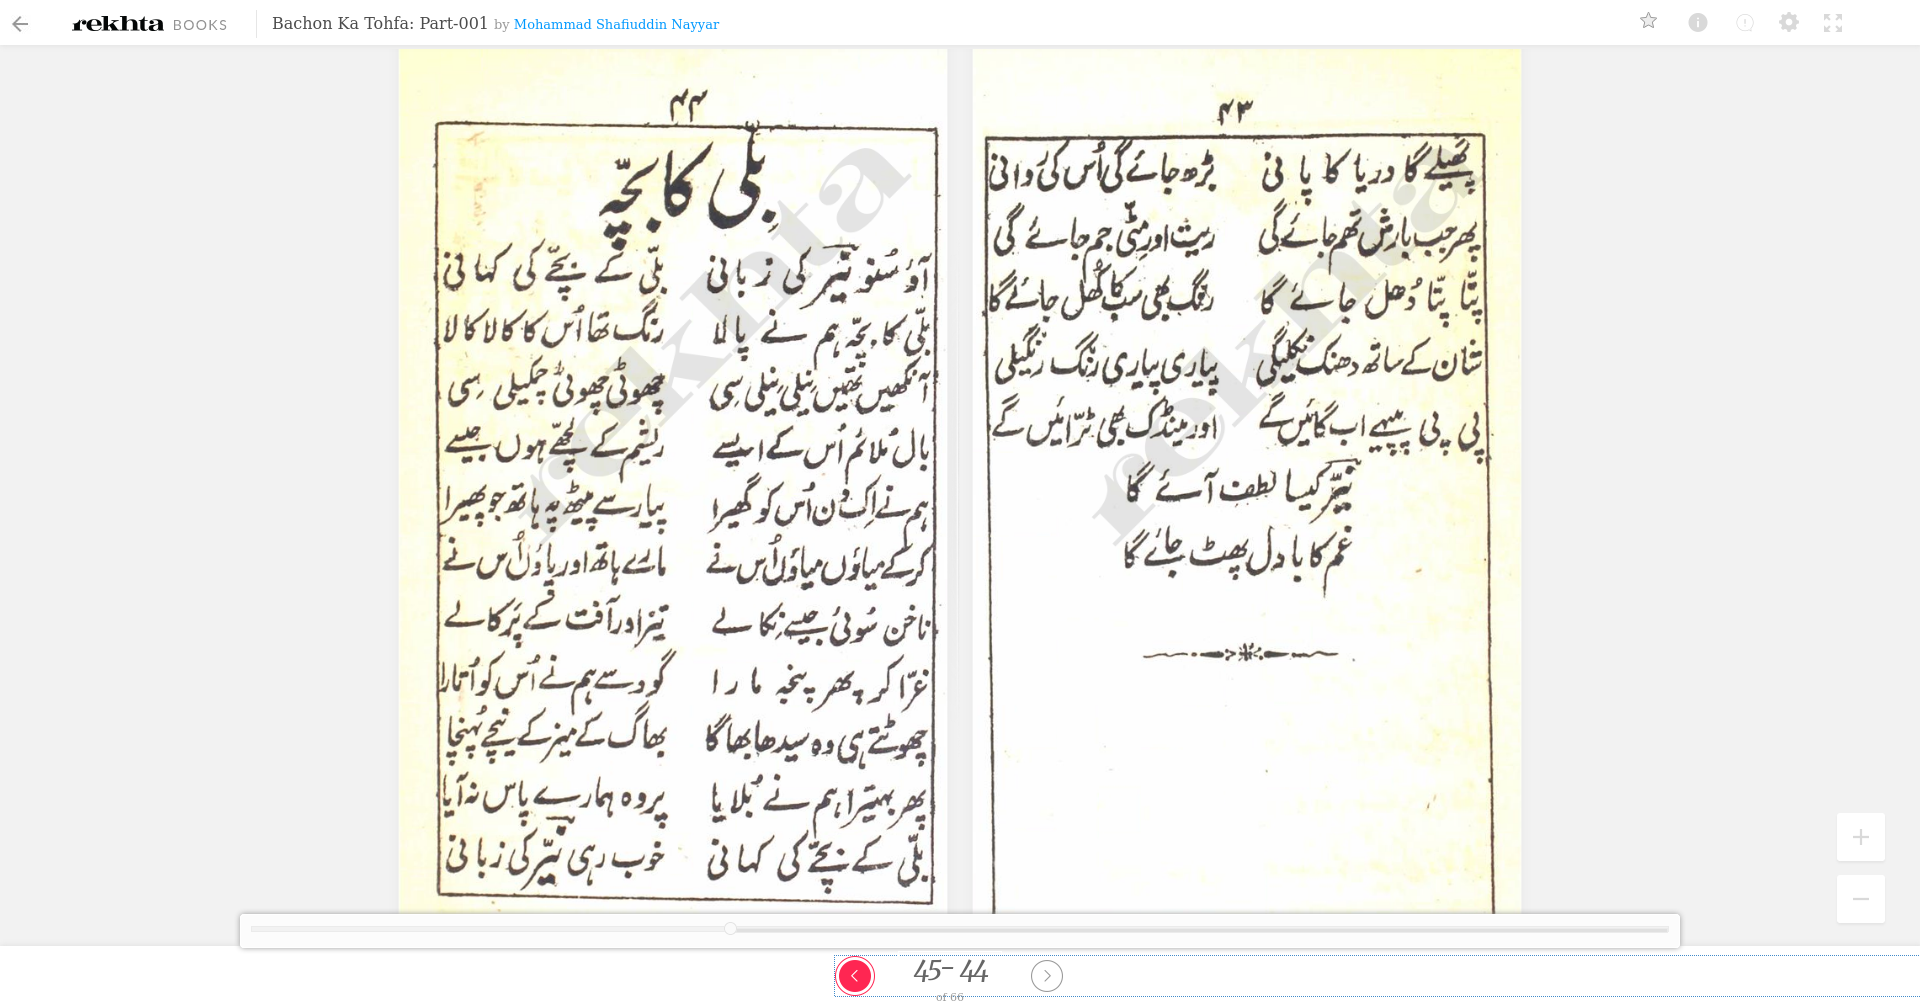 rekhta BOOKS Bachon Ka Tohfa: Part-001 by Mohammad Shafiuddin Nayyar
۴۳
پھیلے گا دریا کا پانی بڑھ جائے گی اُس کی روانی
پھر جب بارش تھم جائے گی ریت اور مٹّی جم جائے گی
پتّا پتّا دُھل جائے گا رنگ بھی سب کا کُھل جائے گا
شان کے ساتھ دھنک نکلیگی پیاری پیاری رنگ رنگیلی
پی پی پپیہے اب گائیں گے اور مینڈک بھی ٹرّائیں گے
نیّر کیسا لطف آئے گا
غم کا بادل پھٹ جائے گا
۴۴
بِلّی کا بچّہ
آؤ سُنو نیّر کی زبانی بلّی کے بچّے کی کہانی
بلّی کا بچّہ ہم نے پالا رنگ تھا اُس کا کالا کالا
آنکھیں تھیں نیلی نیلی سی چھوٹی چھوٹی چمکیلی سی
بال مُلائم اُس کے ایسے ریشم کے لچھّے ہوں جیسے
ہم نے اِک دن اُس کو گھیرا پیار سے پیٹھ پہ ہاتھ جو پھیرا
کر کے میاؤں میاؤں اُس نے مارے ہاتھ اور پاؤں اُس نے
ناخن سُوئی جیسے نِکالے تیز اور آفت کے پَرکالے
غرّا کر پھر پنجہ مارا گود سے ہم نے اُس کو اُتارا
چھوٹتے ہی وہ سیدھا بھاگا بھاگ کے میز کے نیچے پُہنچا
پھر بہتیرا ہم نے بُلایا پر وہ ہمارے پاس نہ آیا
بلّی کے بچّے کی کہانی خوب رہی نیّر کی زبانی
rekhta
rekhta
45- 44
of 66